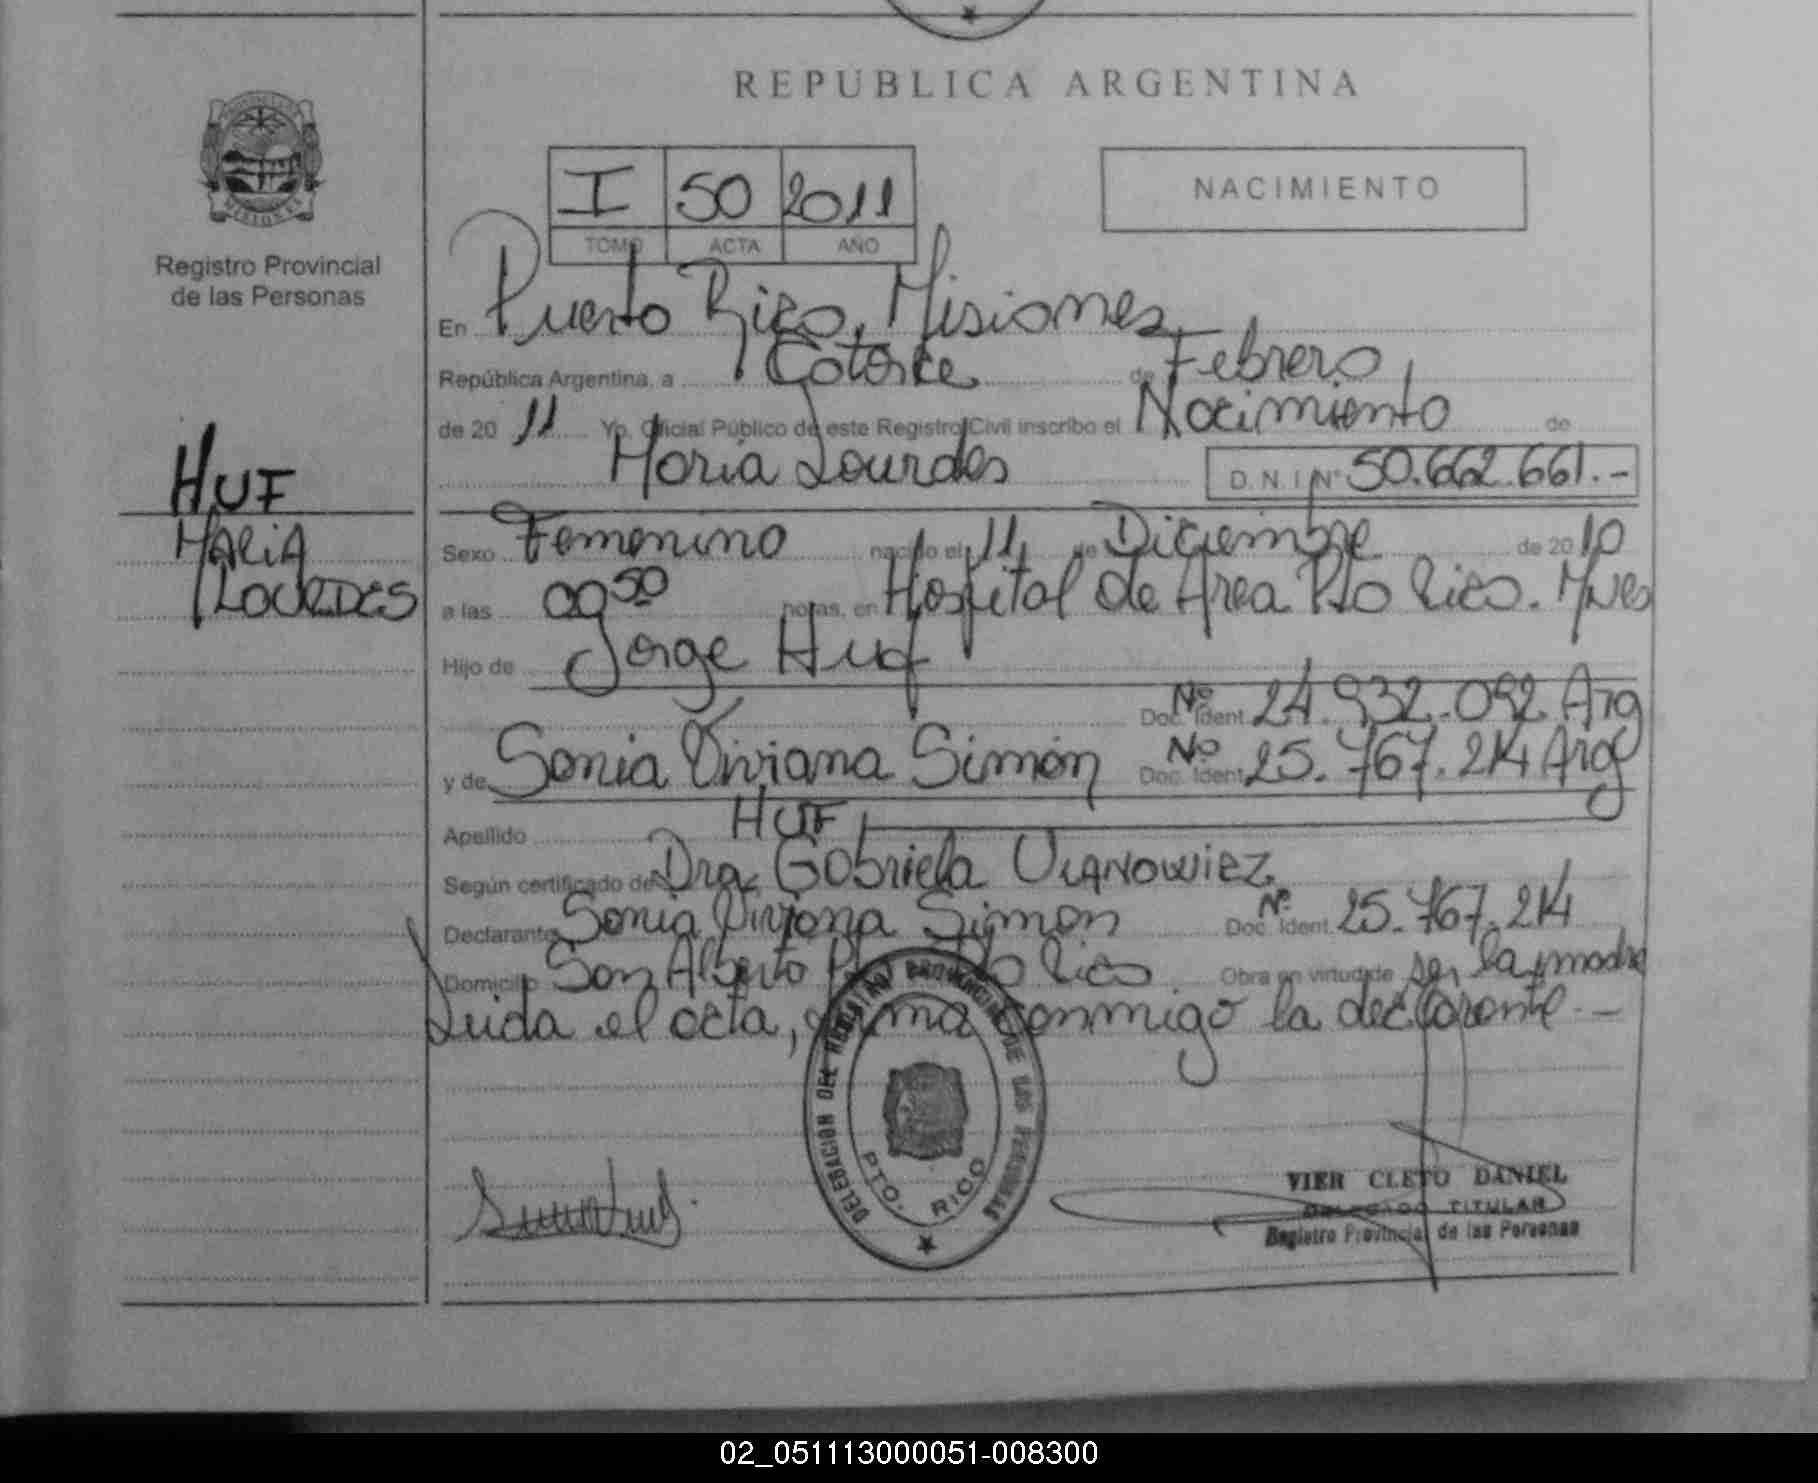 REPUBLICA ARGENTINA
I 50 2011
TOMO ACTA AÑO
NACIMIENTO
MISIONES
Registro Provincial
de las Personas
HUF
MARIA
LOURDES
En Puerto Rico, Misiones,
República Argentina, a Catorce de Febrero
de 20 11 Yo, Oficial Público de este Registro Civil inscribo el Nacimiento de
María Lourdes D.N.I. Nº 50.662.661.-
Sexo Femenino nacido el 11 de Diciembre de 2010
a las 09 50 horas, en Hospital de Area Pto Rico. Mnes
Hijo de Jorge Huf
Nº Doc. Ident. 24.932.092 Arg
y de Sonia Viviana Simón Nº Doc. Ident. 25.767.214 Arg
Apellido HUF
Según certificado de Dra. Gabriela
Declarante Sonia Viviana Simón Nº Doc. Ident. 25.767.214
Domicilio San Alberto Pto Rico Obra en virtud de ser la madre
Leída el acta, firma conmigo la declarante.-
DELEGACION DEL REGISTRO PROVINCIAL DE LAS PERSONAS
PTO. RICO
VIER CLETO DANIEL
DELEGADO TITULAR
Registro Provincial de las Personas
02_051113000051-008300